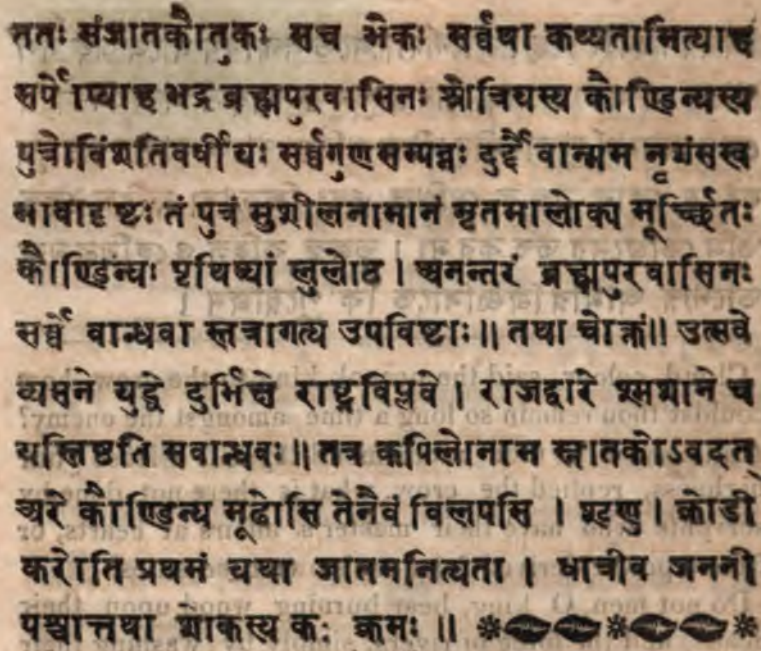 ततः संजातकौतुकः सच भेकः सर्वथा कथ्यतामित्याह
सर्पोप्याह भद्र ब्रह्मपुरवासिनः श्रोत्रियस्य कौण्डिन्यस्य
पुत्रोविंशतिवर्षीयः सर्व्वगुणसम्पन्नः दुर्द्दैवान्मम नृशंसस्व
भावाद्दष्टः तं पुत्रं सुशीलनामानं मृतमालोक्य मूर्च्छितः
कौण्डिन्यः पृथिव्यां लुलोठ । अनन्तरं ब्रह्मपुरवासिनः
सर्व्वे वान्धवा स्तत्रागत्य उपविष्टाः ॥ तथा चोक्तं ॥ उत्सवे
व्यसने युद्धे दुर्भिक्षे राष्ट्रविप्लवे । राजद्वारे श्मशाने च
यस्तिष्टति सवान्धवः ॥ तत्र कपिलोनाम स्नातकोऽवदत्
अरे कौण्डिन्य मूढोसि तेनैवं विलपसि । शृणु । क्रोडी
करोति प्रथमं यथा जातमनित्यता । धात्रीव जननी
पश्चात्तथा शोकस्य कः क्रमः ॥ *